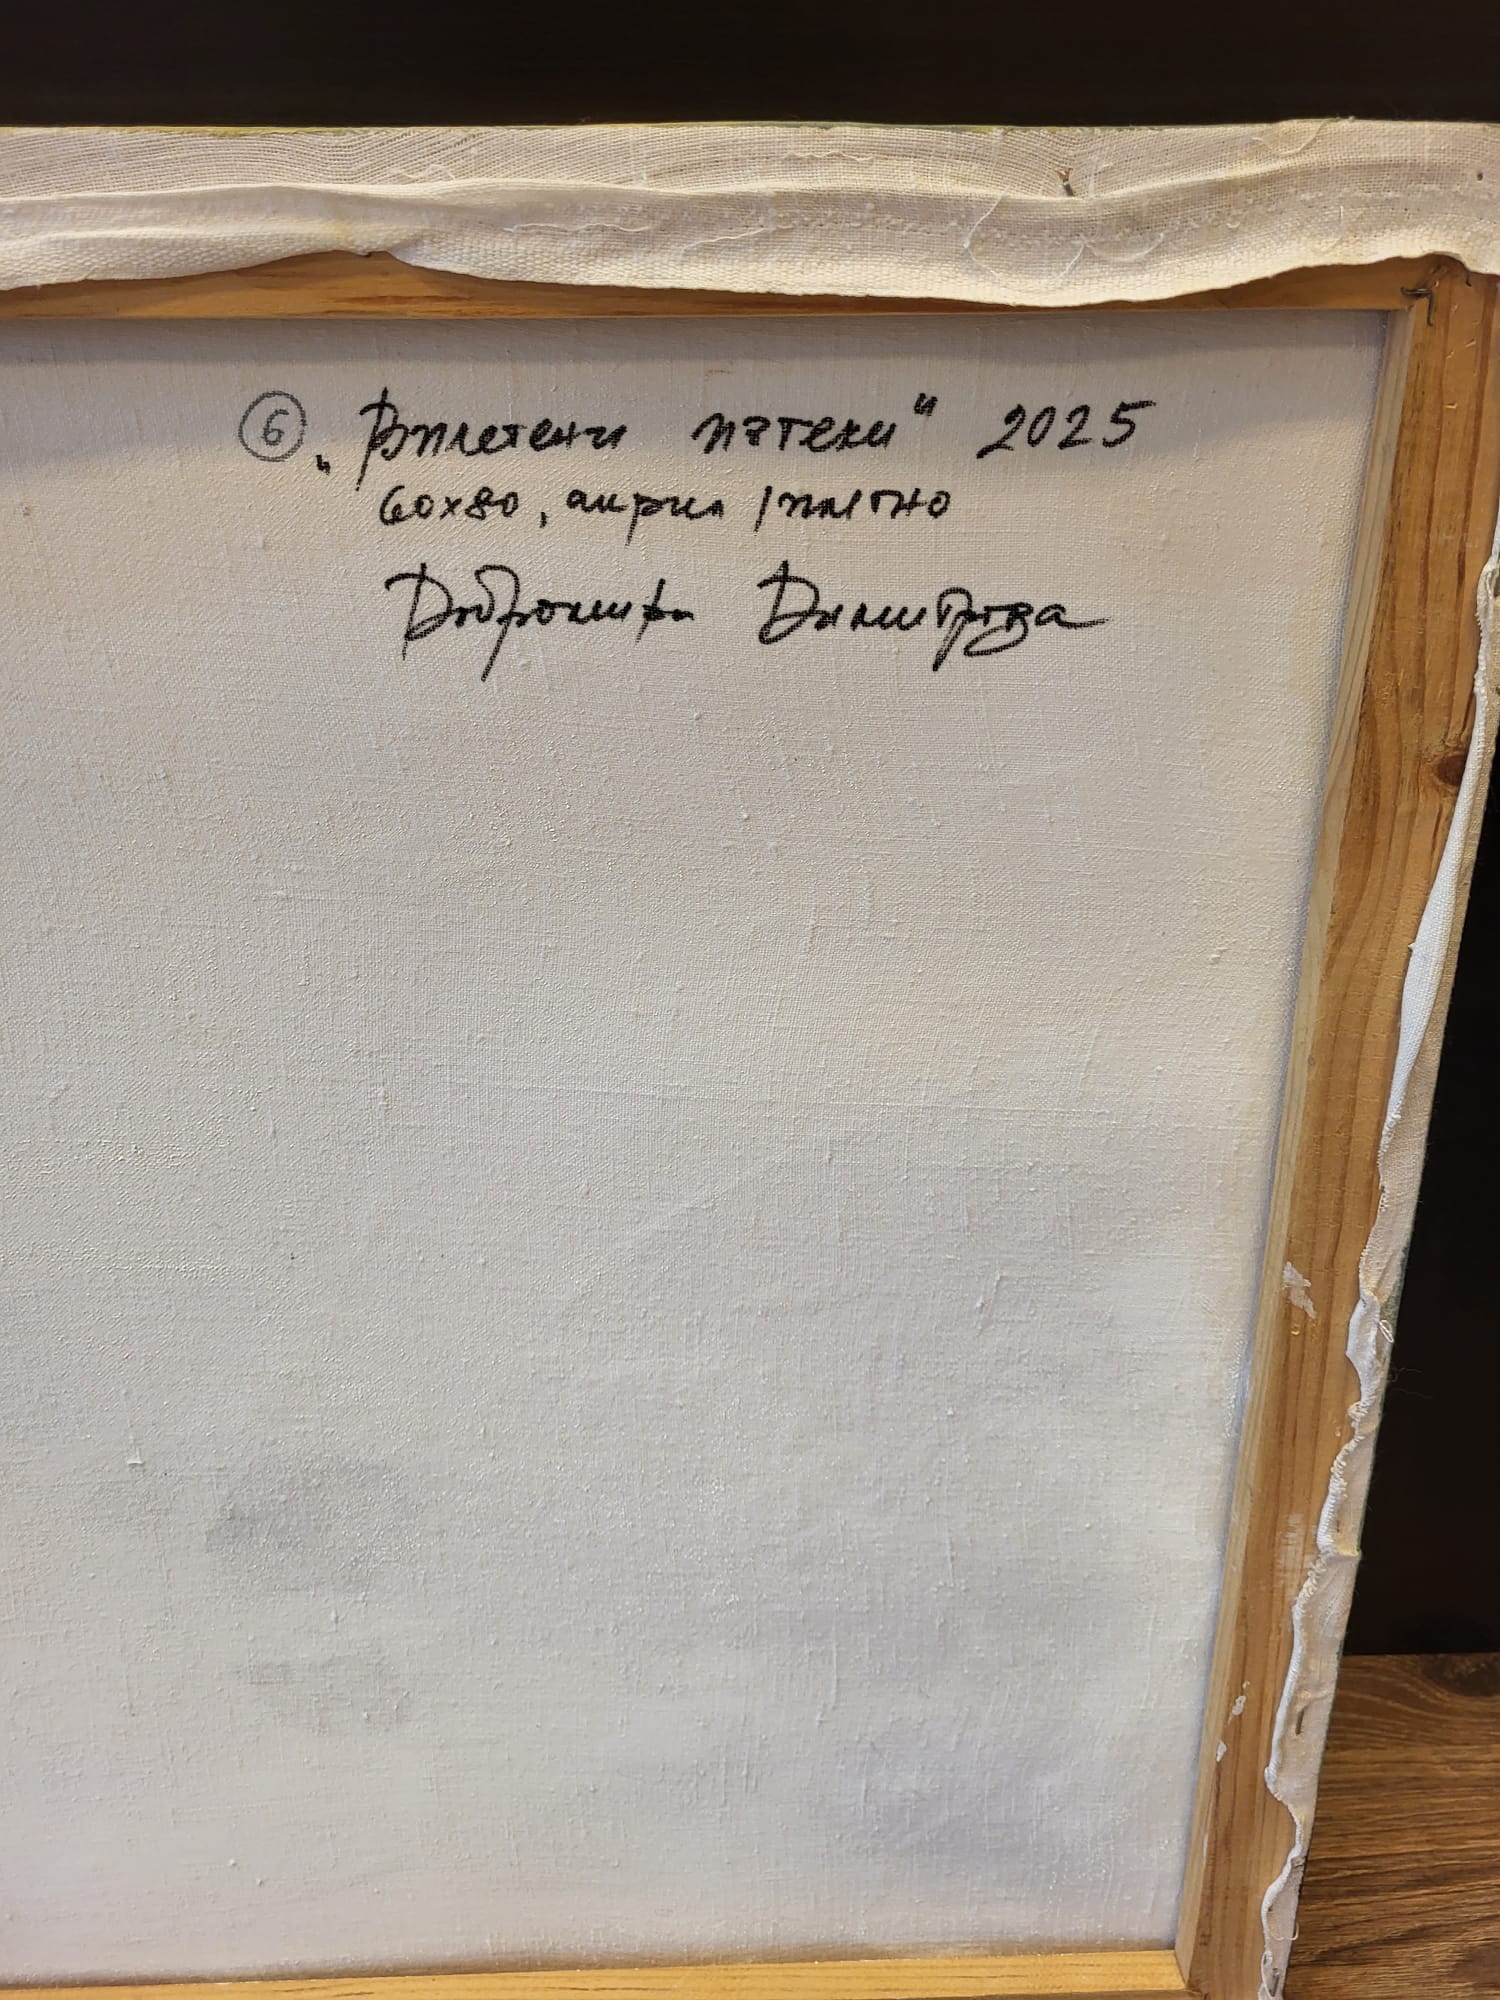 ⑥ „Вплетени пътеки“ 2025
60x80, акрил / платно
Добромира Димитрова